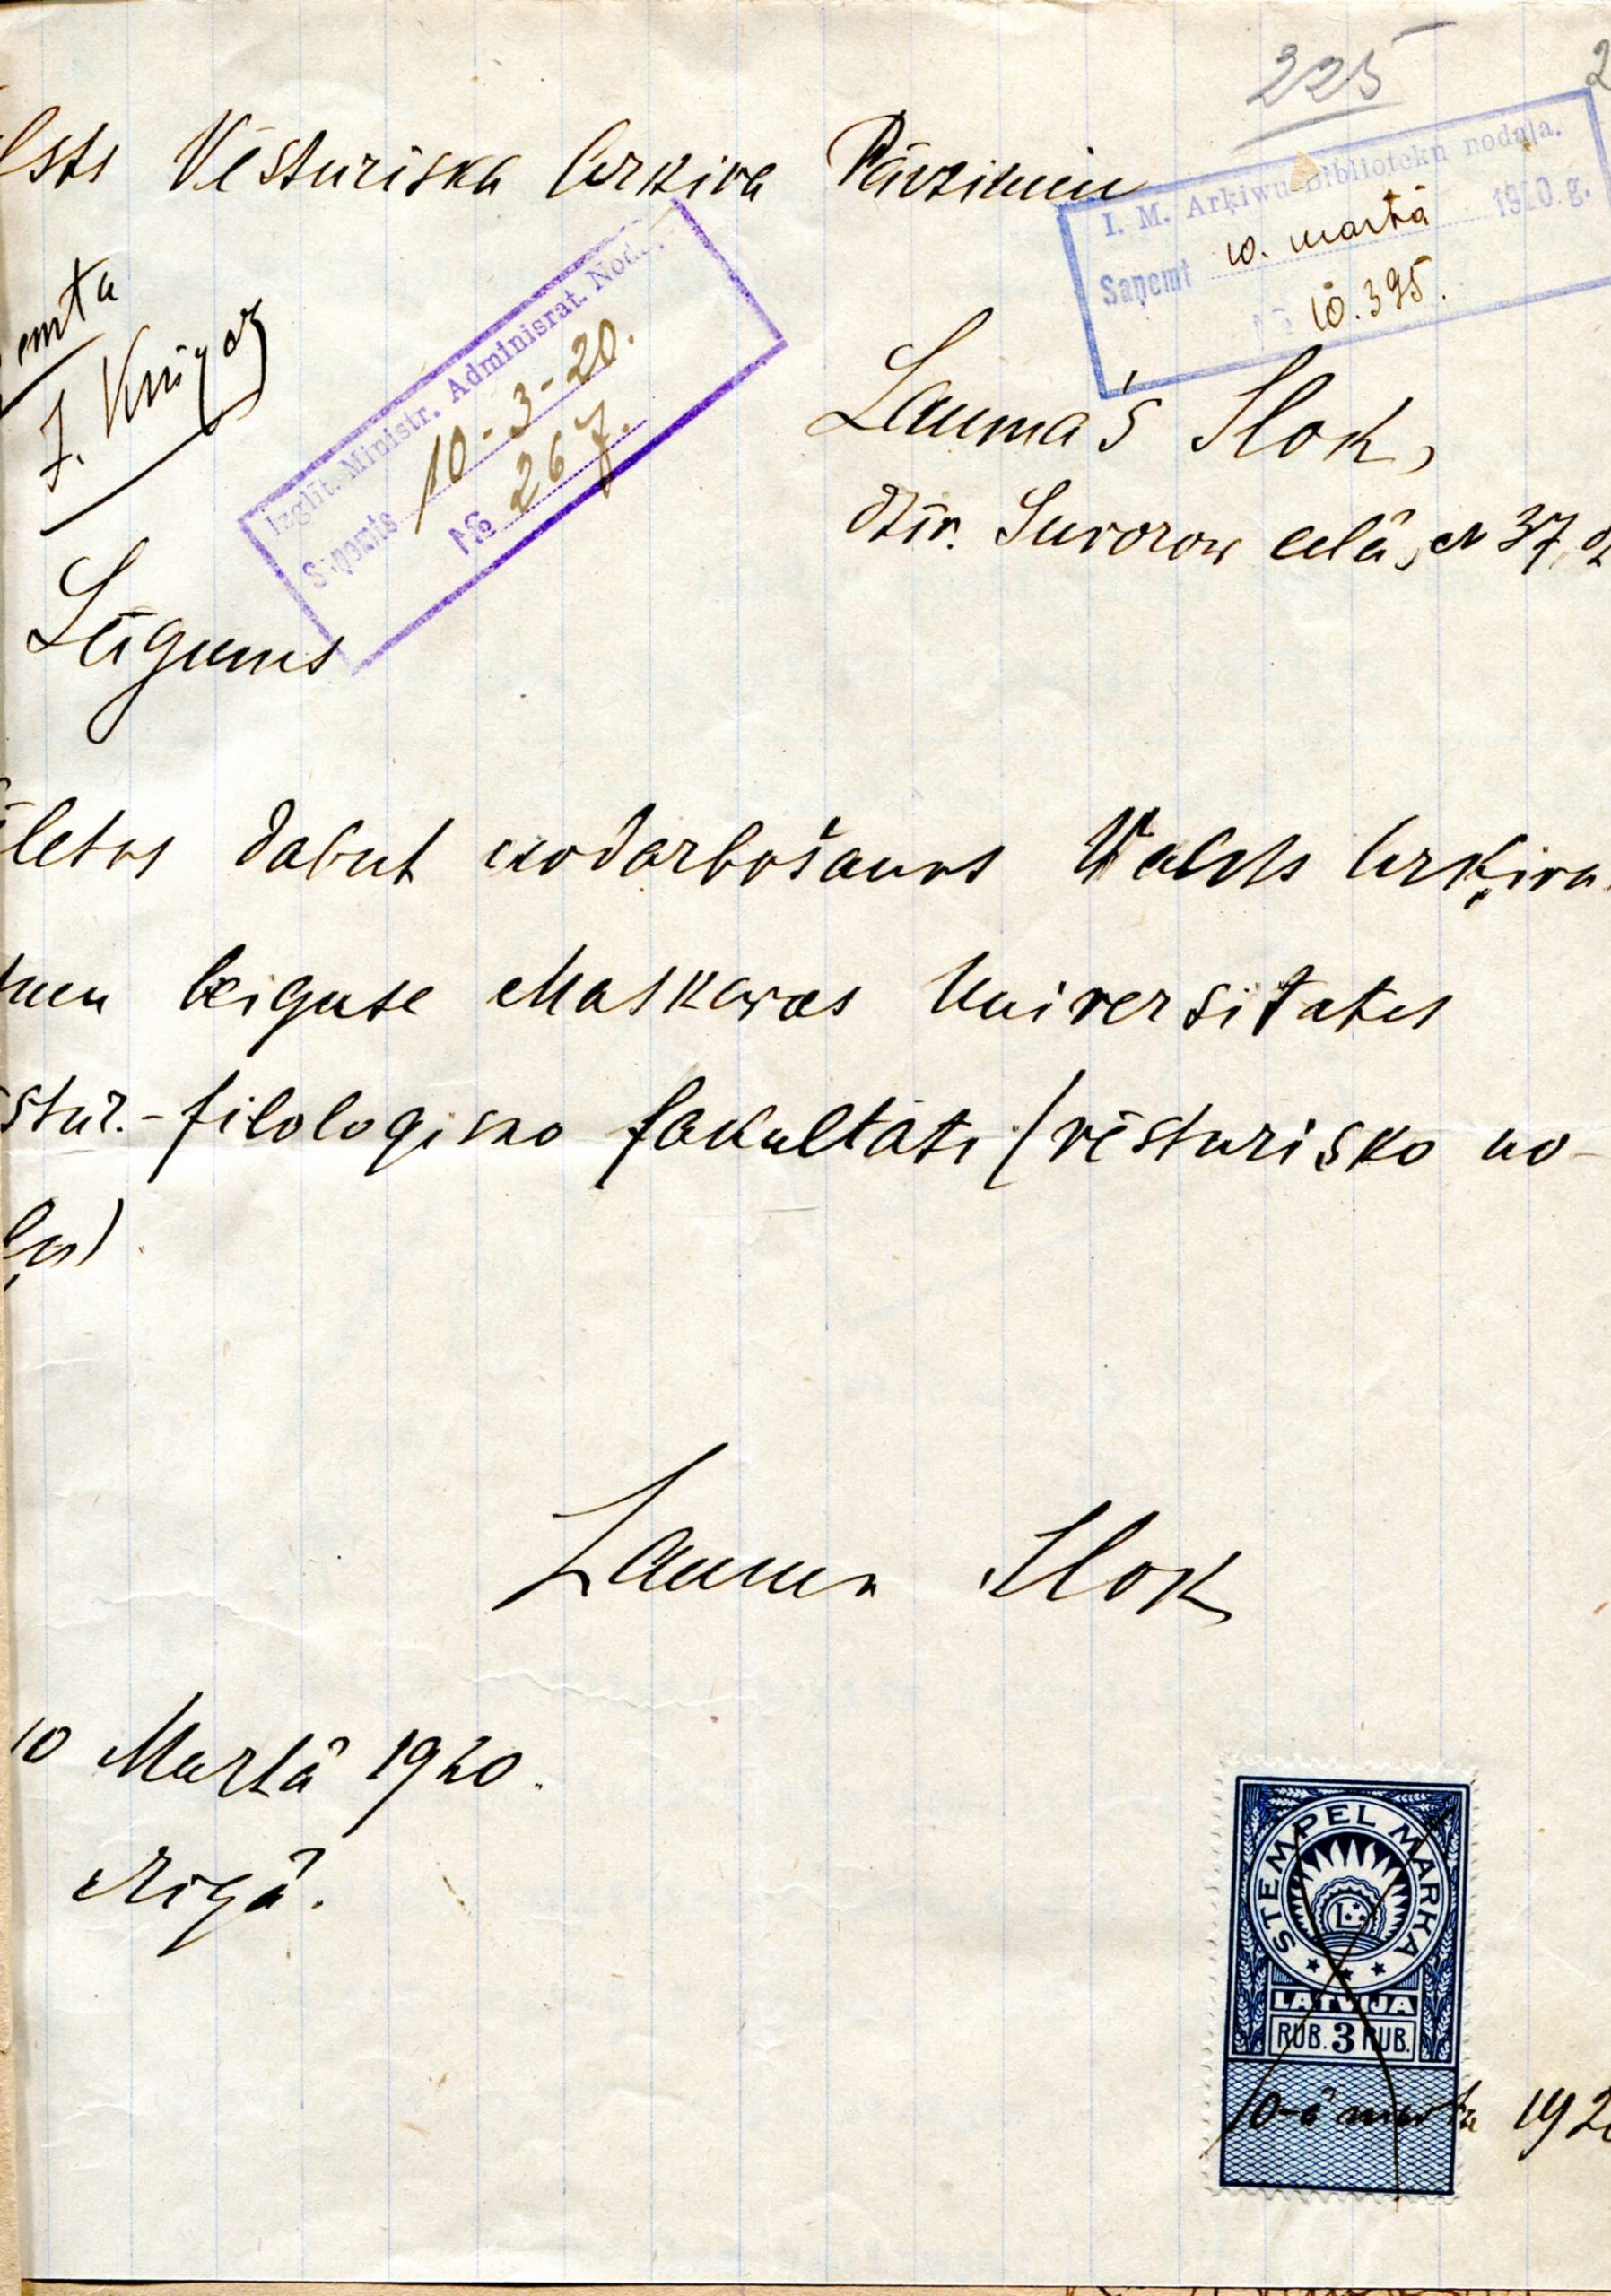 225
2
lsts Vēsturiska Arkiva Pārzinim
I. M. Arķiwu-Bibliotekn nodaļa.
Saņemt 10. martā 1920. g.
№ 10.395.
emta
J. Krīgaz
Izglit. Ministr. Adminisrat. Nod.
Saņemts 10-3-20.
№ 267.
Laumas Slok,
dzīv. Suvorow eelā, N 37, dz
Lūgums
letos dabūt nodarbošanos Valsts Arķiva
beiguse Maskavas Universitates
stur.-filologisko fakultāti (vēsturisko no-
ļu)
Lauma Slok
10 Martā 1920.
Rigā.
STEMPEL MARKA
LATVIJA
RUB. 3 RUB.
10-ā martā 192